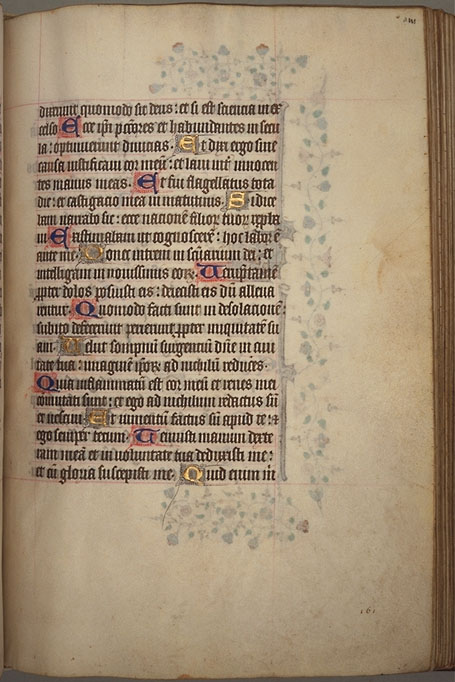 dixerunt quomodo scit deus: et si est sciencia in ex
celso Ecce ip̄i pctōres et habundantes in secu
la: optinuerunt divicias. Et dixi ergo sine
causa iustificavi cor meū: et lavi inť innocen
tes manus meas. Et fui flagellatus tota
die: et castigacio mea in matutinis. Si dice
bam narrabo sic: ecce nacionē filioꝝ tuoꝝ rep̄ba
vi Existimabam ut cognoscerē: hoc labor ē
ante me. Donec intrem in sc̄uariū dei: et
intelligam in novissimis eoꝝ. Verūptamē
ꝓpter dolos posuisti eis: deiecisti eis dū alleva
rentur. Quomodo facti sunt in desolacionē
subito defecerunt perierunt ꝓpter iniquitatē su
am. Velut sompniū surgenciū dn̄e in civi
tate tua: imaginē ip̄oꝝ ad nichilū rediges.
Quia inflammatū est cor meū et renes mei
cōmutati sunt: et ego ad nichilum redactus sū
et nescivi. Et iumentū factus sū apud te: ⁊
ego semper tecum. Tenuisti manum dexte
ram meā et in voluntate tua deduxisti me:
et cū gloria suscepisti me. Quid enim m̄
161